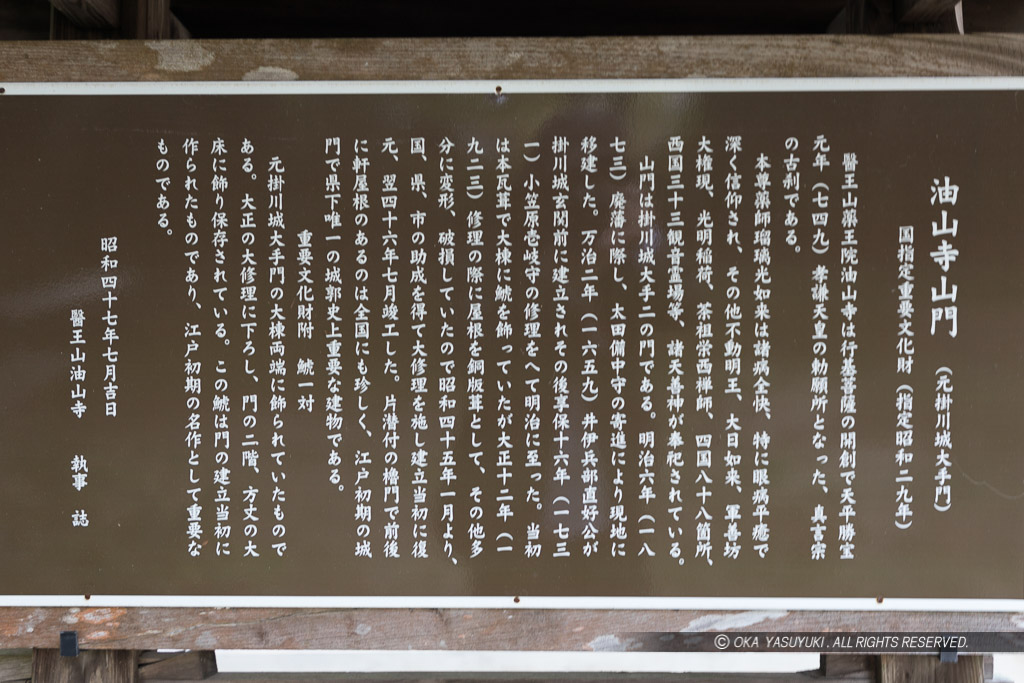 油山寺山門 (元掛川城大手門)
国指定重要文化財 (指定昭和二九年)
醫王山薬王院油山寺は行基菩薩の開創で天平勝宝
元年(七四九)孝謙天皇の勅願所となった、真言宗
の古刹である。
本尊薬師瑠璃光如来は諸病全快、特に眼病平癒で
深く信仰され、その他不動明王、大日如来、軍善坊
大権現、光明稲荷、茶祖栄西禅師、四国八十八箇所、
西国三十三観音霊場等、諸天善神が奉祀されている。
山門は掛川城大手二の門である。明治六年(一八
七三)廃藩に際し、太田備中守の寄進により現地に
移建した。万治二年(一六五九)井伊兵部直好公が
掛川城玄関前に建立されその後享保十六年(一七三
一)小笠原壱岐守の修理をへて明治に至った。当初
は本瓦葺で大棟に鯱を飾っていたが大正十二年(一
九二三)修理の際に屋根を銅版葺として、その他多
分に変形、破損していたので昭和四十五年一月より、
国、県、市の助成を得て大修理を施し建立当初に復
元、翌四十六年七月竣工した。片潜付の櫓門で前後
に軒屋根のあるのは全国にも珍しく、江戸初期の城
門で県下唯一の城郭史上重要な建物である。
重要文化財附 鯱一対
元掛川城大手門の大棟両端に飾られていたもので
ある。大正の大修理に下ろし、門の二階、方丈の大
床に飾り保存されている。この鯱は門の建立当初に
作られたものであり、江戸初期の名作として重要な
ものである。
昭和四十七年七月吉日
醫王山油山寺 執事 誌
© OKA YASUYUKI. ALL RIGHTS RESERVED.